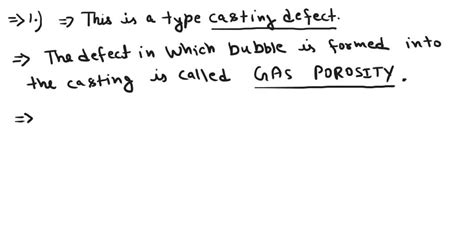 ⇒ 1.) ⇒ This is a type casting defect.
⇒ The defect in which bubble is formed into
the casting is called GAS POROSITY.
⇒